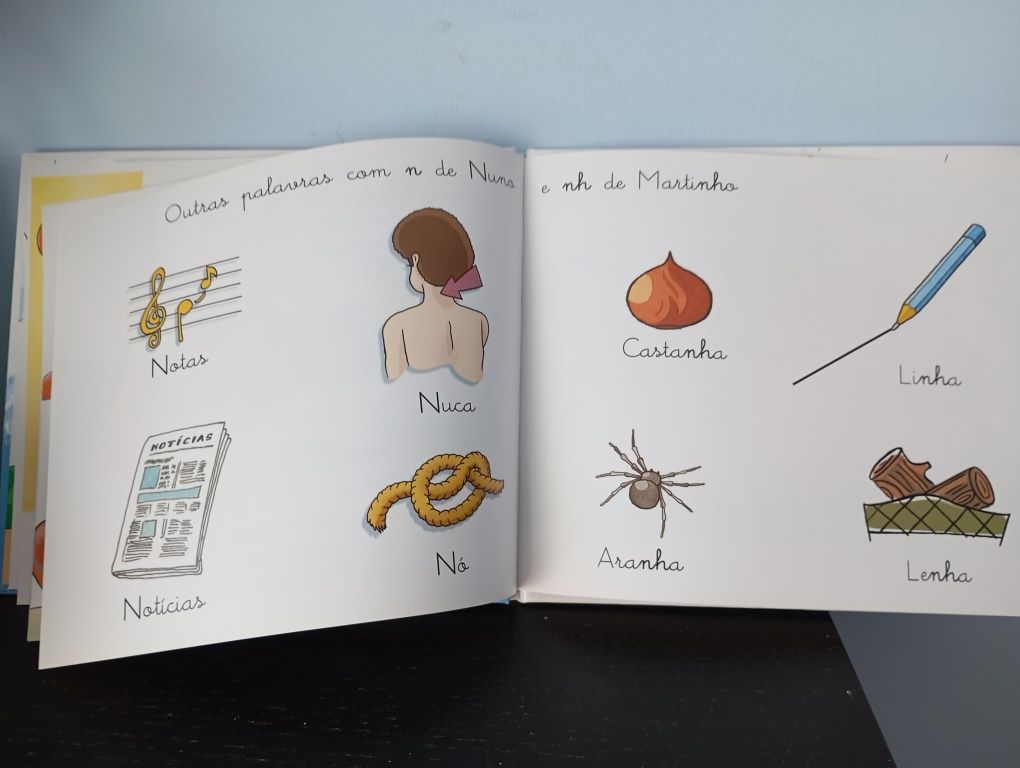 Outras palavras com n de Nuno e nh de Martinho
Notas
Nuca
NOTÍCIAS
Notícias
Nó
Castanha
Linha
Aranha
Lenha